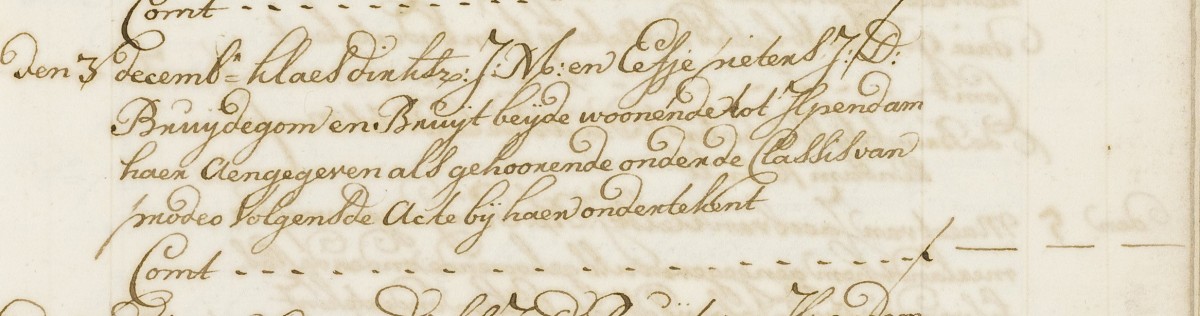 Comt
Den 3 decemb^r= klaes dirksz: J: M: en Eefje pieters J: D:
Bruydegom en Bruyt beyde woonende tot Ilpendam
haer Aengegeven als gehoorende onder de Classis van
prodeo volgens de Acte bij haer ondertekent
Comt - - - - - - - - - - - - - - - - - / — — —